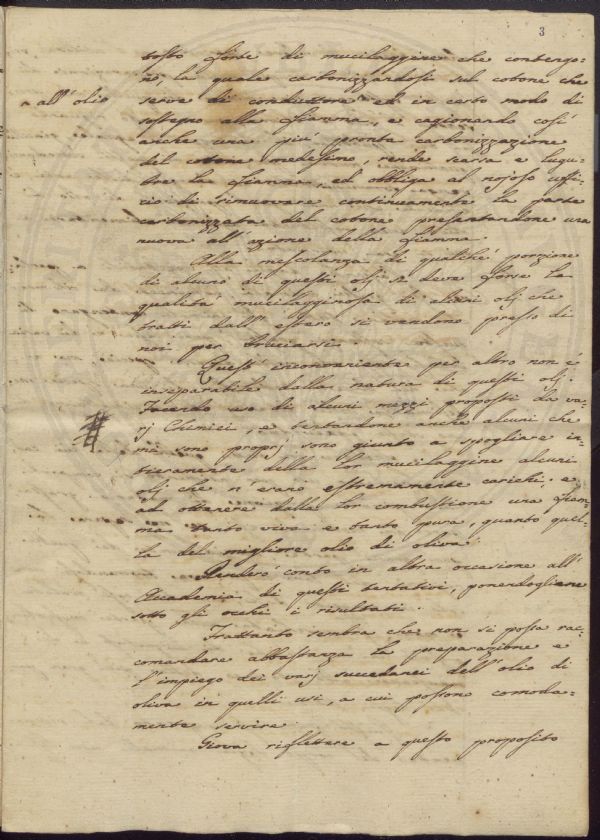 3
tosto forte di mucilaggine che contengo=
no, la quale carbonizzandosi sul cotone che
n all' olio
serve di conduttore ed in certo modo di
sostegno alla fiamma, e cagionando così
anche una più pronta carbonizzazione
del cotone medesimo, rende scarsa e lugu=
bre la fiamma, ed obbliga al nojoso uffi=
cio di rimuovere continuamente la parte
carbonizzata del cotone presentandone una
nuova all' azione della fiamma.
Alla mescolanza di qualche porzione
di alcuno di questi olj si deve forse la
qualità mucilagginosa di alcuni olj che
tratti dall' estero si vendono presso di
noi per bruciarsi.
Quest' inconveniente per altro non è
inseparabile dalla natura di questi olj.
Facendo uso di alcuni mezzi proposti da va=
rj Chimici, e tentandone anche alcuni che
mi sono proprj sono giunto a spogliare in=
tieramente della lor mucilaggine alcuni
olj che n' erano estremamente carichi, e
ad ottenere dalla lor combustione una fiam=
ma tanto viva e tanto pura, quanto quel=
la del migliore olio di oliva.
Renderò conto in altra occasione all'
Accademia di questi tentativi, ponendogliene
sotto gli occhi i risultati.
Frattanto sembra che non si possa rac=
comandare abbastanza la preparazione e
l' impiego dei varj succedanei dell' olio di
oliva in quelli usi, a cui possono comoda=
mente servire.
Giova riflettere a questo proposito